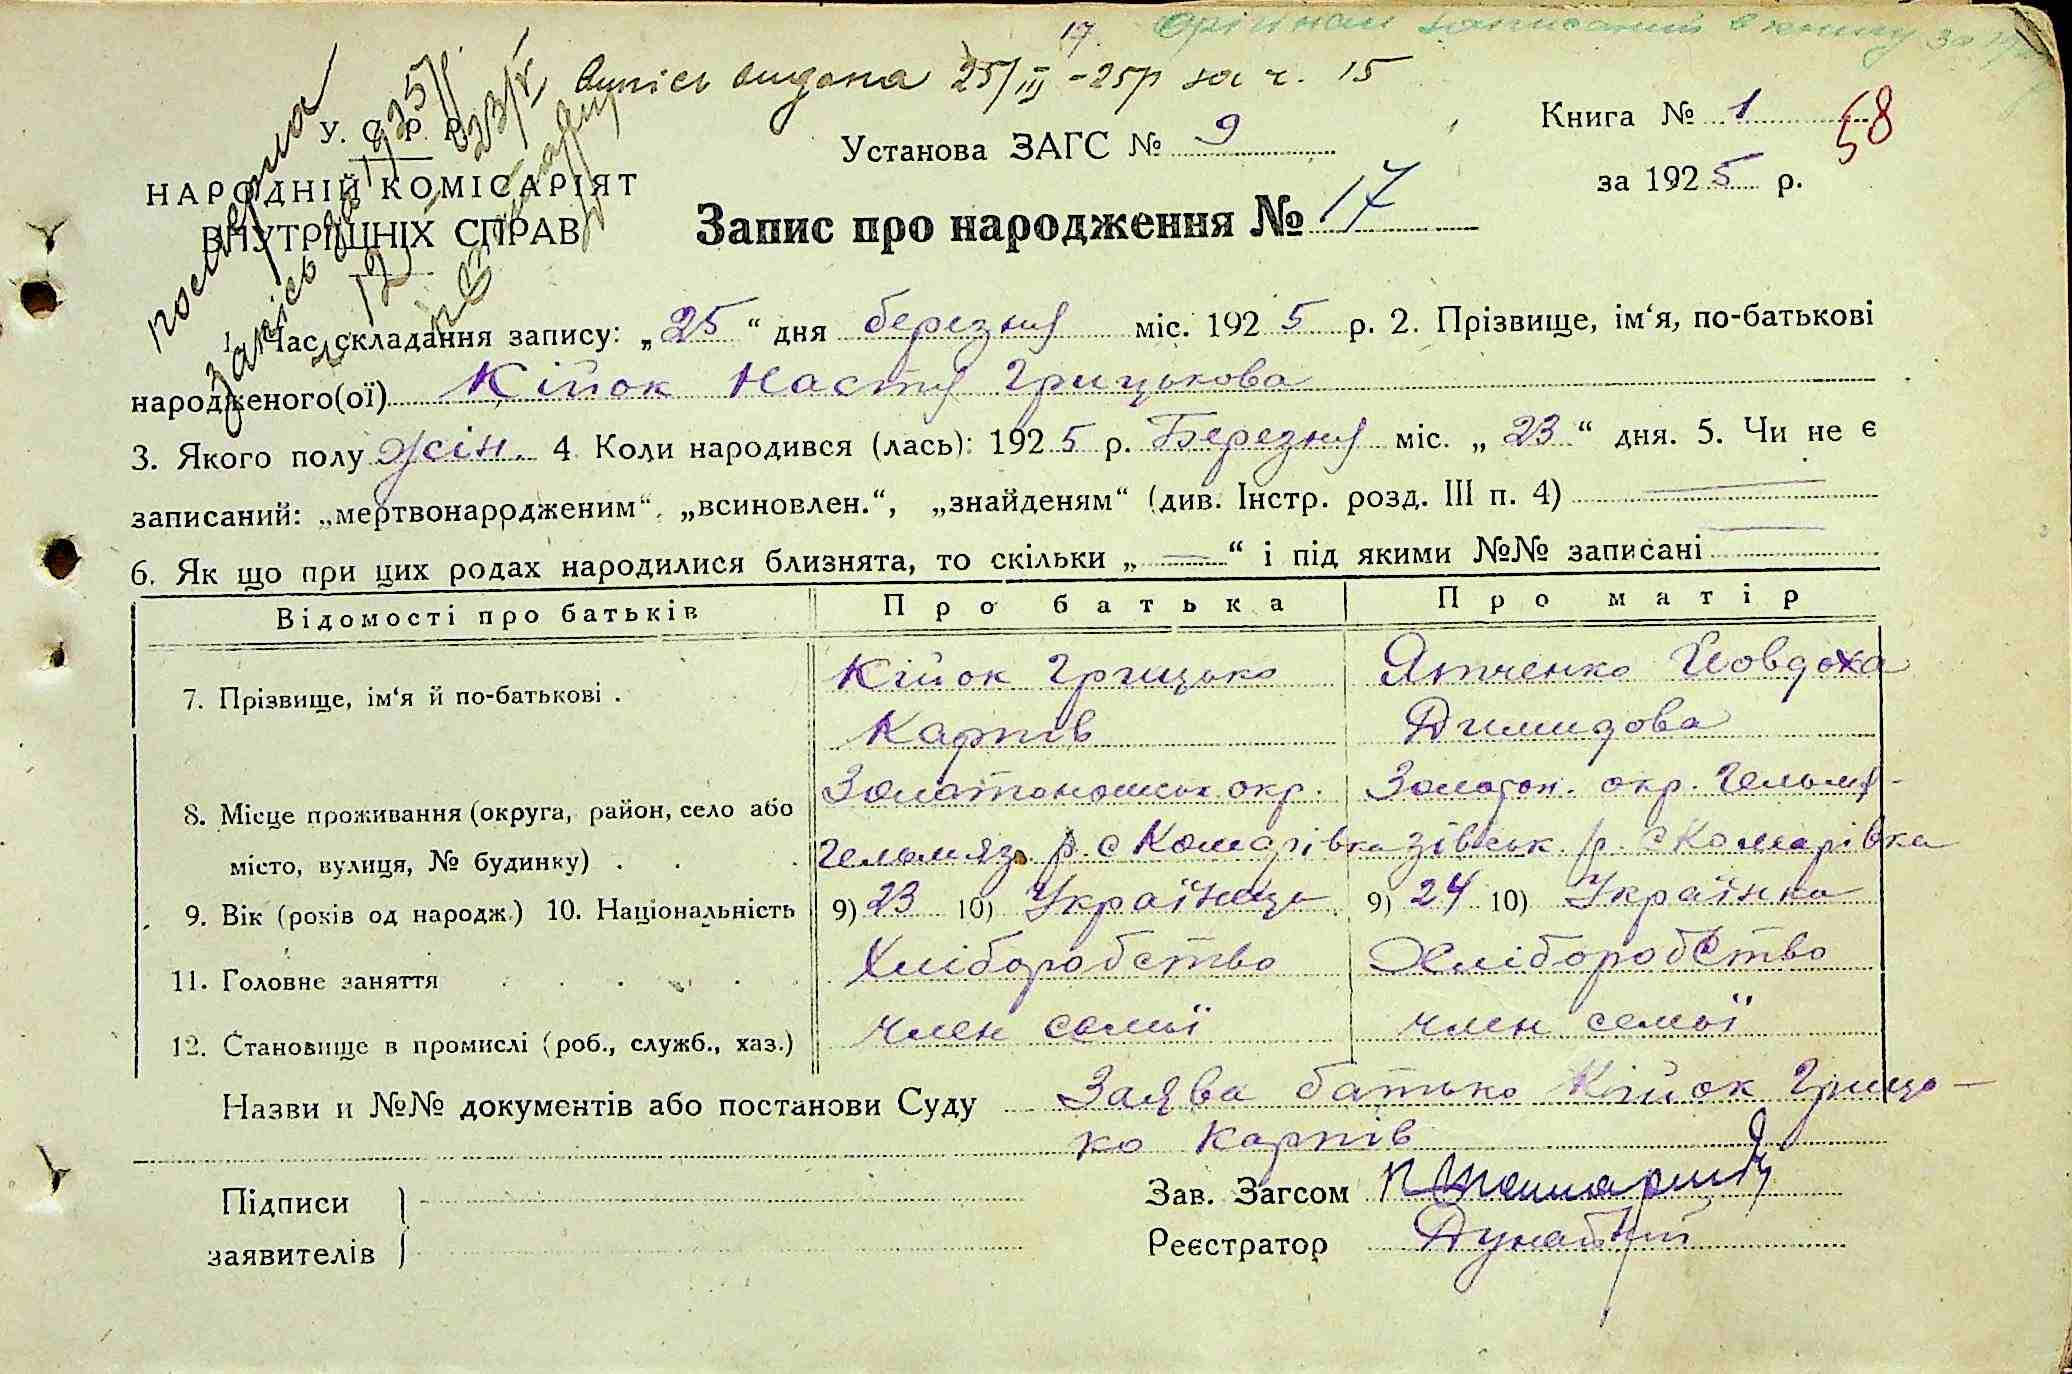 17. орігінал записаний в книгу за
Випісь видана 25/III -25р за ч. 15
померла
запісь за 1925 р.
12
У. С. Р. Р.
НАРОДНІЙ КОМІСАРІЯТ
ВНУТРІШНІХ СПРАВ
Установа ЗАГС № 9
Книга № 1
58
за 1925 р.
Запис про народження № 17
1. Час складання запису: „25“ дня березня міс. 1925 р. 2. Прізвище, ім‘я, по-батькові
народженого(ої) Кійок Настя Грицькова
3. Якого полу жін. 4. Коли народився (лась): 1925 р. Березня міс. „23“ дня. 5. Чи не є
записаний: „мертвонародженим“, „всиновлен.“, „знайденям“ (див. Інстр. розд. III п. 4) —
6. Як що при цих родах народилися близнята, то скільки „—“ і під якими №№ записані —
Відомості про батьків Про батька Про матір
7. Прізвище, ім‘я й по-батькові . Кійок Грицько Ятченко Йовдоха
Карпів Димидова
8. Місце проживання (округа, район, село або Золотоношськ окр. Золотон. окр. Гельмя-
місто, вулиця, № будинку) . . . Гельмяз. р. с Комарівка зівськ р. с Комарівка
9. Вік (років од народж.) 10. Національність 9) 23 10) Українець 9) 24 10) Українка
11. Головне заняття . . . . . Хліборобство Хліборобство
12. Становище в промислі (роб., служб., хаз.) член семьї член семьї
Назви и №№ документів або постанови Суду Заява батько Кійок Гриць-
ко Карпів
Підписи
заявителів
Зав. Загсом
Реєстратор